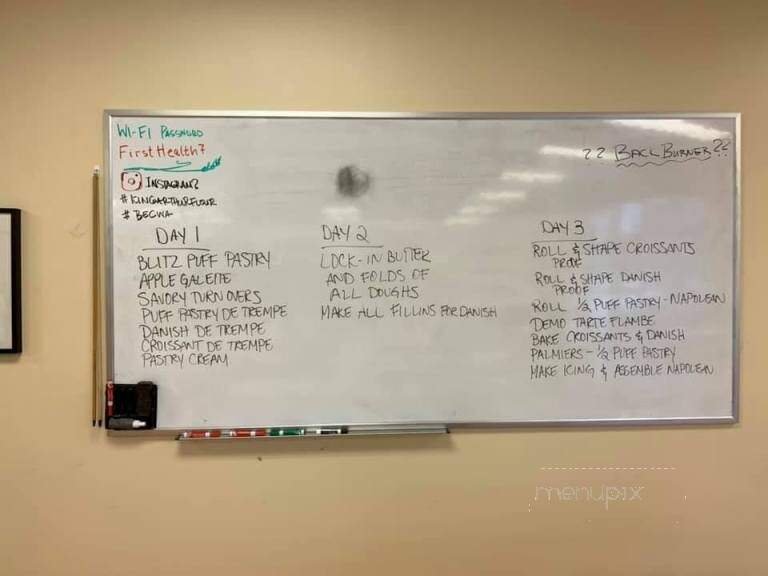 WI-FI PASSWORD
FirstHealth7
INSTAGRAM?
#KINGARTHURFLOUR
# BECWA
?? BACK BURNER ??
DAY 1
BLITZ PUFF PASTRY
APPLE GALETTE
SAVORY TURNOVERS
PUFF PASTRY DE TREMPE
DANISH DE TREMPE
CROISSANT DE TREMPE
PASTRY CREAM
DAY 2
LOCK-IN BUTTER
AND FOLDS OF
ALL DOUGHS
MAKE ALL FILLINS FOR DANISH
DAY 3
ROLL & SHAPE CROISSANTS
PROOF
ROLL & SHAPE DANISH
PROOF
ROLL 1/2 PUFF PASTRY - NAPOLEAN
DEMO TARTE FLAMBE
BAKE CROISSANTS & DANISH
PALMIERS - 1/2 PUFF PASTRY
MAKE ICING & ASSEMBLE NAPOLEAN
menupix